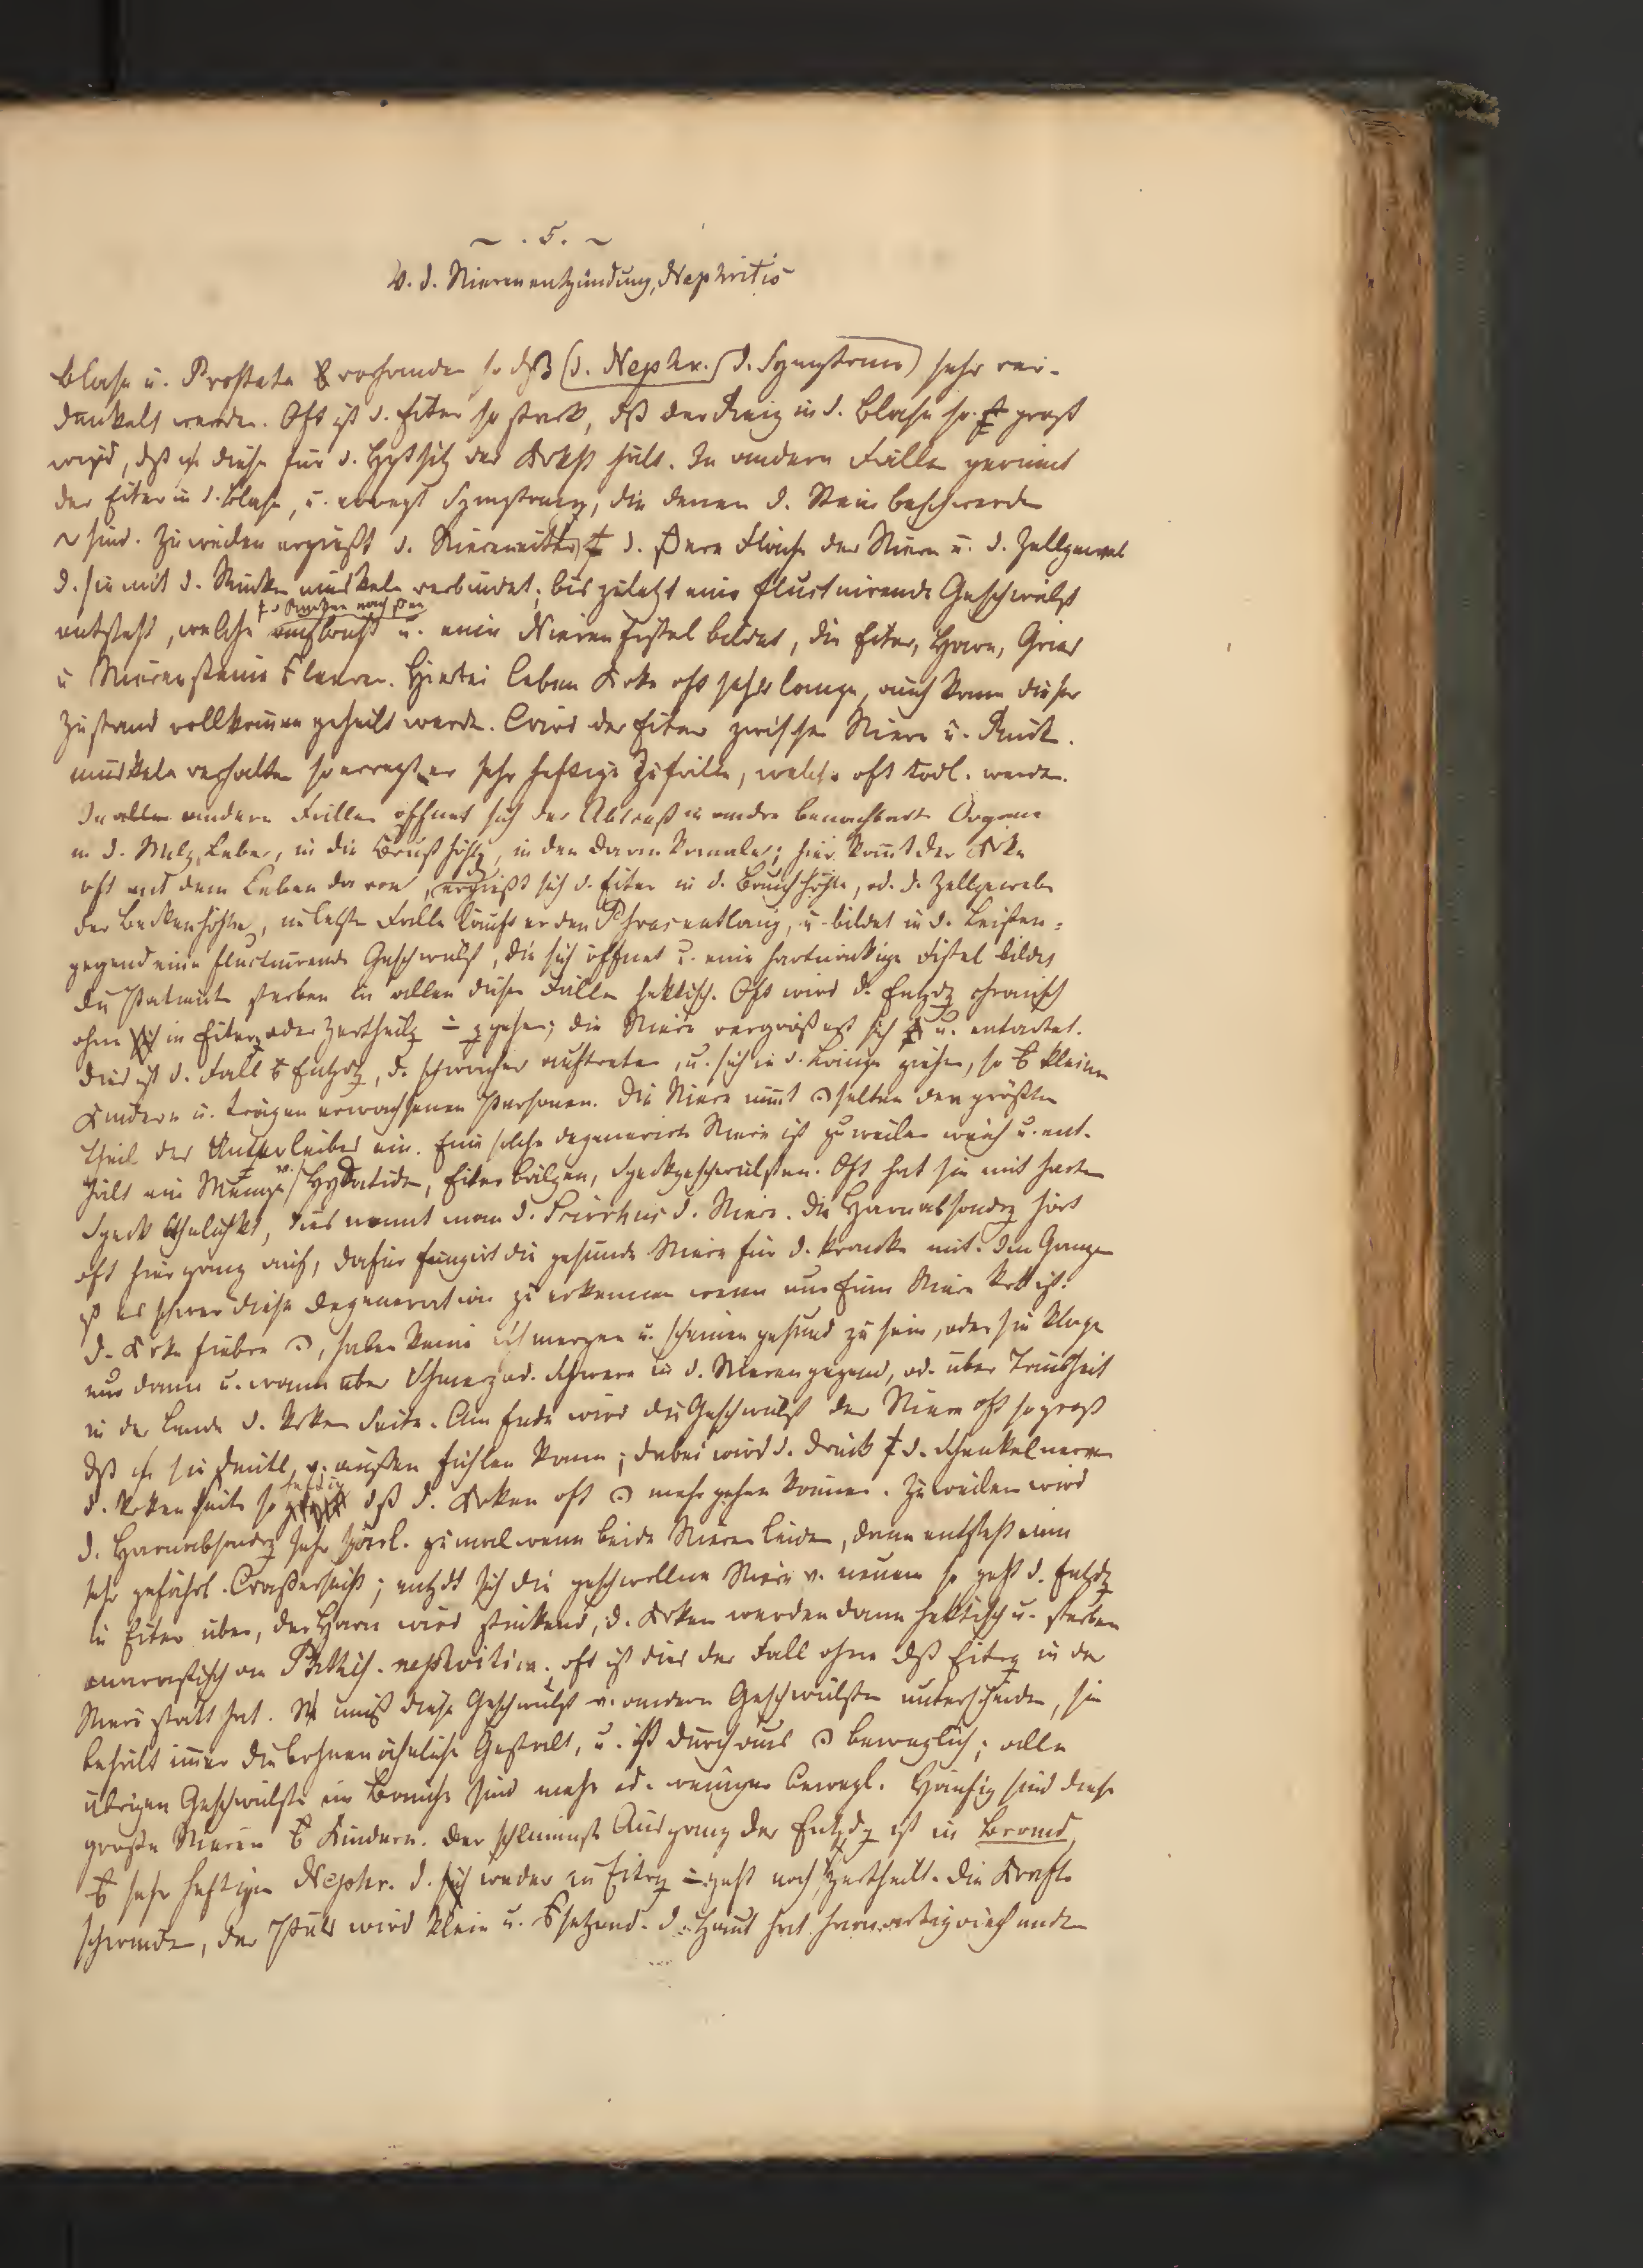 ~ . 5. ~
V. d. Nierenentzündung, Nephritis
Blase u. Prostata vorhanden so dß (d. Nephr. d. Symptome) sehr ver-
dunkelt werden. Oft ist d. Eiter so stark, dß der Reiz in d. Blase so groß
wird, dß diese für d. Hptsitz der hält. In andern Fällen gerinnt
der Eiter in d. Blase, u. erregt Symptome, die denen d. Steinbeschwerden
~ sind. Zuweilen ergießt d. Niereneiter d. Fläche der Niere u. d. Zellgewebe
d. sie mit d. Rückenmuskeln verbindet; bis zuletzt eine fluctuirende Geschwulst
entsteht, welche aufbricht u. eine Nierenfistel bildet, die Eiter, Harn, Gries
u Nierensteine. Hierbei leben Krke oft sehr lange, auch kann dieser
Zustand vollkommen geheilt werde. Wird der Eiter zwischen Niere u. Rück.
muskeln verhalten so erregt er sehr heftige Zufälle, welche oft tödl. werden.
In allen andern Fällen öffnet sich der Abscess in andre benachbarte Organe
in d. Milz, Leber, in die Brusthöhle, in den Darmkanal; hier kommt der Krke
oft mit dem Leben davon, ergießt sich d. Eiter in d. Bauchhöhle, od. d. Zellgewebe
der Beckenhöhle, im letzten Falle läuft er den Psoas entlang, u. bildet in d. Leisten-
gegend eine fluctuirende Geschwulst, die sich öffnet u. eine hartnäckige Fistel bildet,
die Patienten sterben in allen diesen Fällen hektisch. Oft wird d. Entzdg chronisch
ohne in Eiterg oder Zertheilg gehen; die Niere vergrößert sich u. entartet.
Dies ist d. Fall Entzdg, d. schwächer auftreten, u. sich in d. Länge ziehen, so kleinen
Kindern u. trägen erwachsenen Personen. Die Niere nimmt selten den größten
Theil des Unterleibes ein. Eine solche degenerirte Niere ist zuweilen weich u. ent-
hält eine Menge v. Hydatiden, Eiterbälgen, Speckgeschwülsten. Oft hat sie mit hartem
Speck Ähnlichkt, dies nennt man d. Scirrhus d. Niere. Die Harnabsondrg hört
oft hier ganz auf, dafür fungirt die gesunde Niere für d. kranke mit. Im Ganzen
ist es schwer diese Degeneration zu erkennen wenn nur Eine Niere krk ist.
d. Krke fiebern, haben keine Schmerzen u. scheinen gesund zu sein, oder sie klagen
nur dann u. wann über Schmerz od. Schwere in d. Nierengegend, od. über Taubheit
in der Lende d. krken Seite. Am Ende wird die Geschwulst der Niere oft so groß
dß sie deutl. v. außen fühlen kann; dabei wird d. Druck d. Schenkelnerven
d. krken Seite so heftig dß d. Krken oft mehr gehen können. Zuweilen wird
d. Harnabsondrg sehr spärl. zumal wenn beide Nieren leiden, dann entsteht eine
sehr gefährl.; entzdt sich die geschwollene Niere v. neuem so geht d. Entzdg
in Eiter über, der Harn wird stinkend, d. Krken werden dann hektisch u. sterben
marastisch an Phthis. nephritica. oft ist dies der Fall ohne dß Eitrg in der
Niere statt hat. muß diese Geschwulst v. andern Geschwülsten unterscheiden, sie
behält immer die bohnenähnliche Gestalt, u. ist durchaus beweglich; alle
übrigen Geschwülste im Bauche sind mehr od. weniger bewegl. Häufig sind diese
große Nieren Kindern. Der schlimmste Ausgang der Entzdg ist in Brand,
sehr heftigen Nephr. d. weder in Eitrg geht noch zertheilt. Die Kräfte
schwinden, der Puls wird klein u. setzend. d. Haut hat harnartig riechende